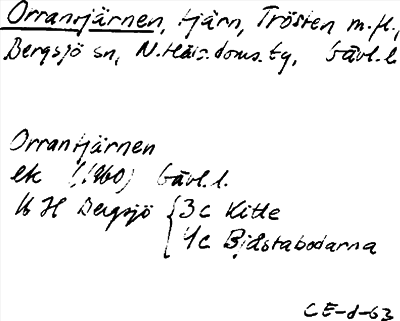 Orrantjärnen, tjärn, Trösten m.fl.,
Bergsjö sn, N.Häls.doms.tg, Gävl.l.
Orrantjärnen
ek (1960) Gävl.l.
16 H Bergsjö { 3c Kitte
4c Bjästabodarna
CE-d-63